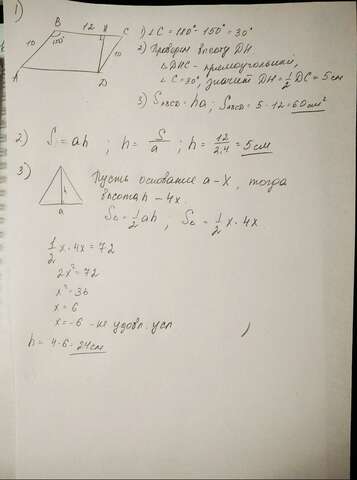 1)
B 12 H C
10 150° 10
A D
1) ∠C = 180° - 150° = 30°
2) Проведем высоту DH.
△DHC - прямоугольный,
∠C = 30°, значит DH = 1/2 DC = 5см
3) SABCD = ha; SABCD = 5 · 12 = 60 см²
2) S = ah ; h = S/a ; h = 12/2,4 = 5см
3) Пусть основание a - x, тогда
высота h - 4x.
h
a
S△ = 1/2 ah ; S△ = 1/2 x · 4x
1/2 x · 4x = 72
2x² = 72
x² = 36
x = 6
x = -6 - не удовл. усл
h = 4 · 6 = 24см